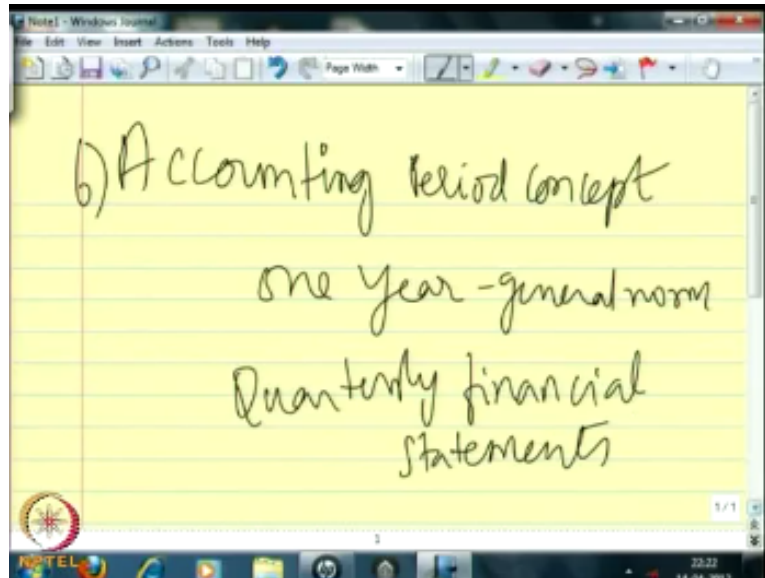 Note1 - Windows Journal
File Edit View Insert Actions Tools Help
Page Width
6) Accounting Period concept
one year - general norm
Quarterly financial
statements
1/1
1
NPTEL
22:22